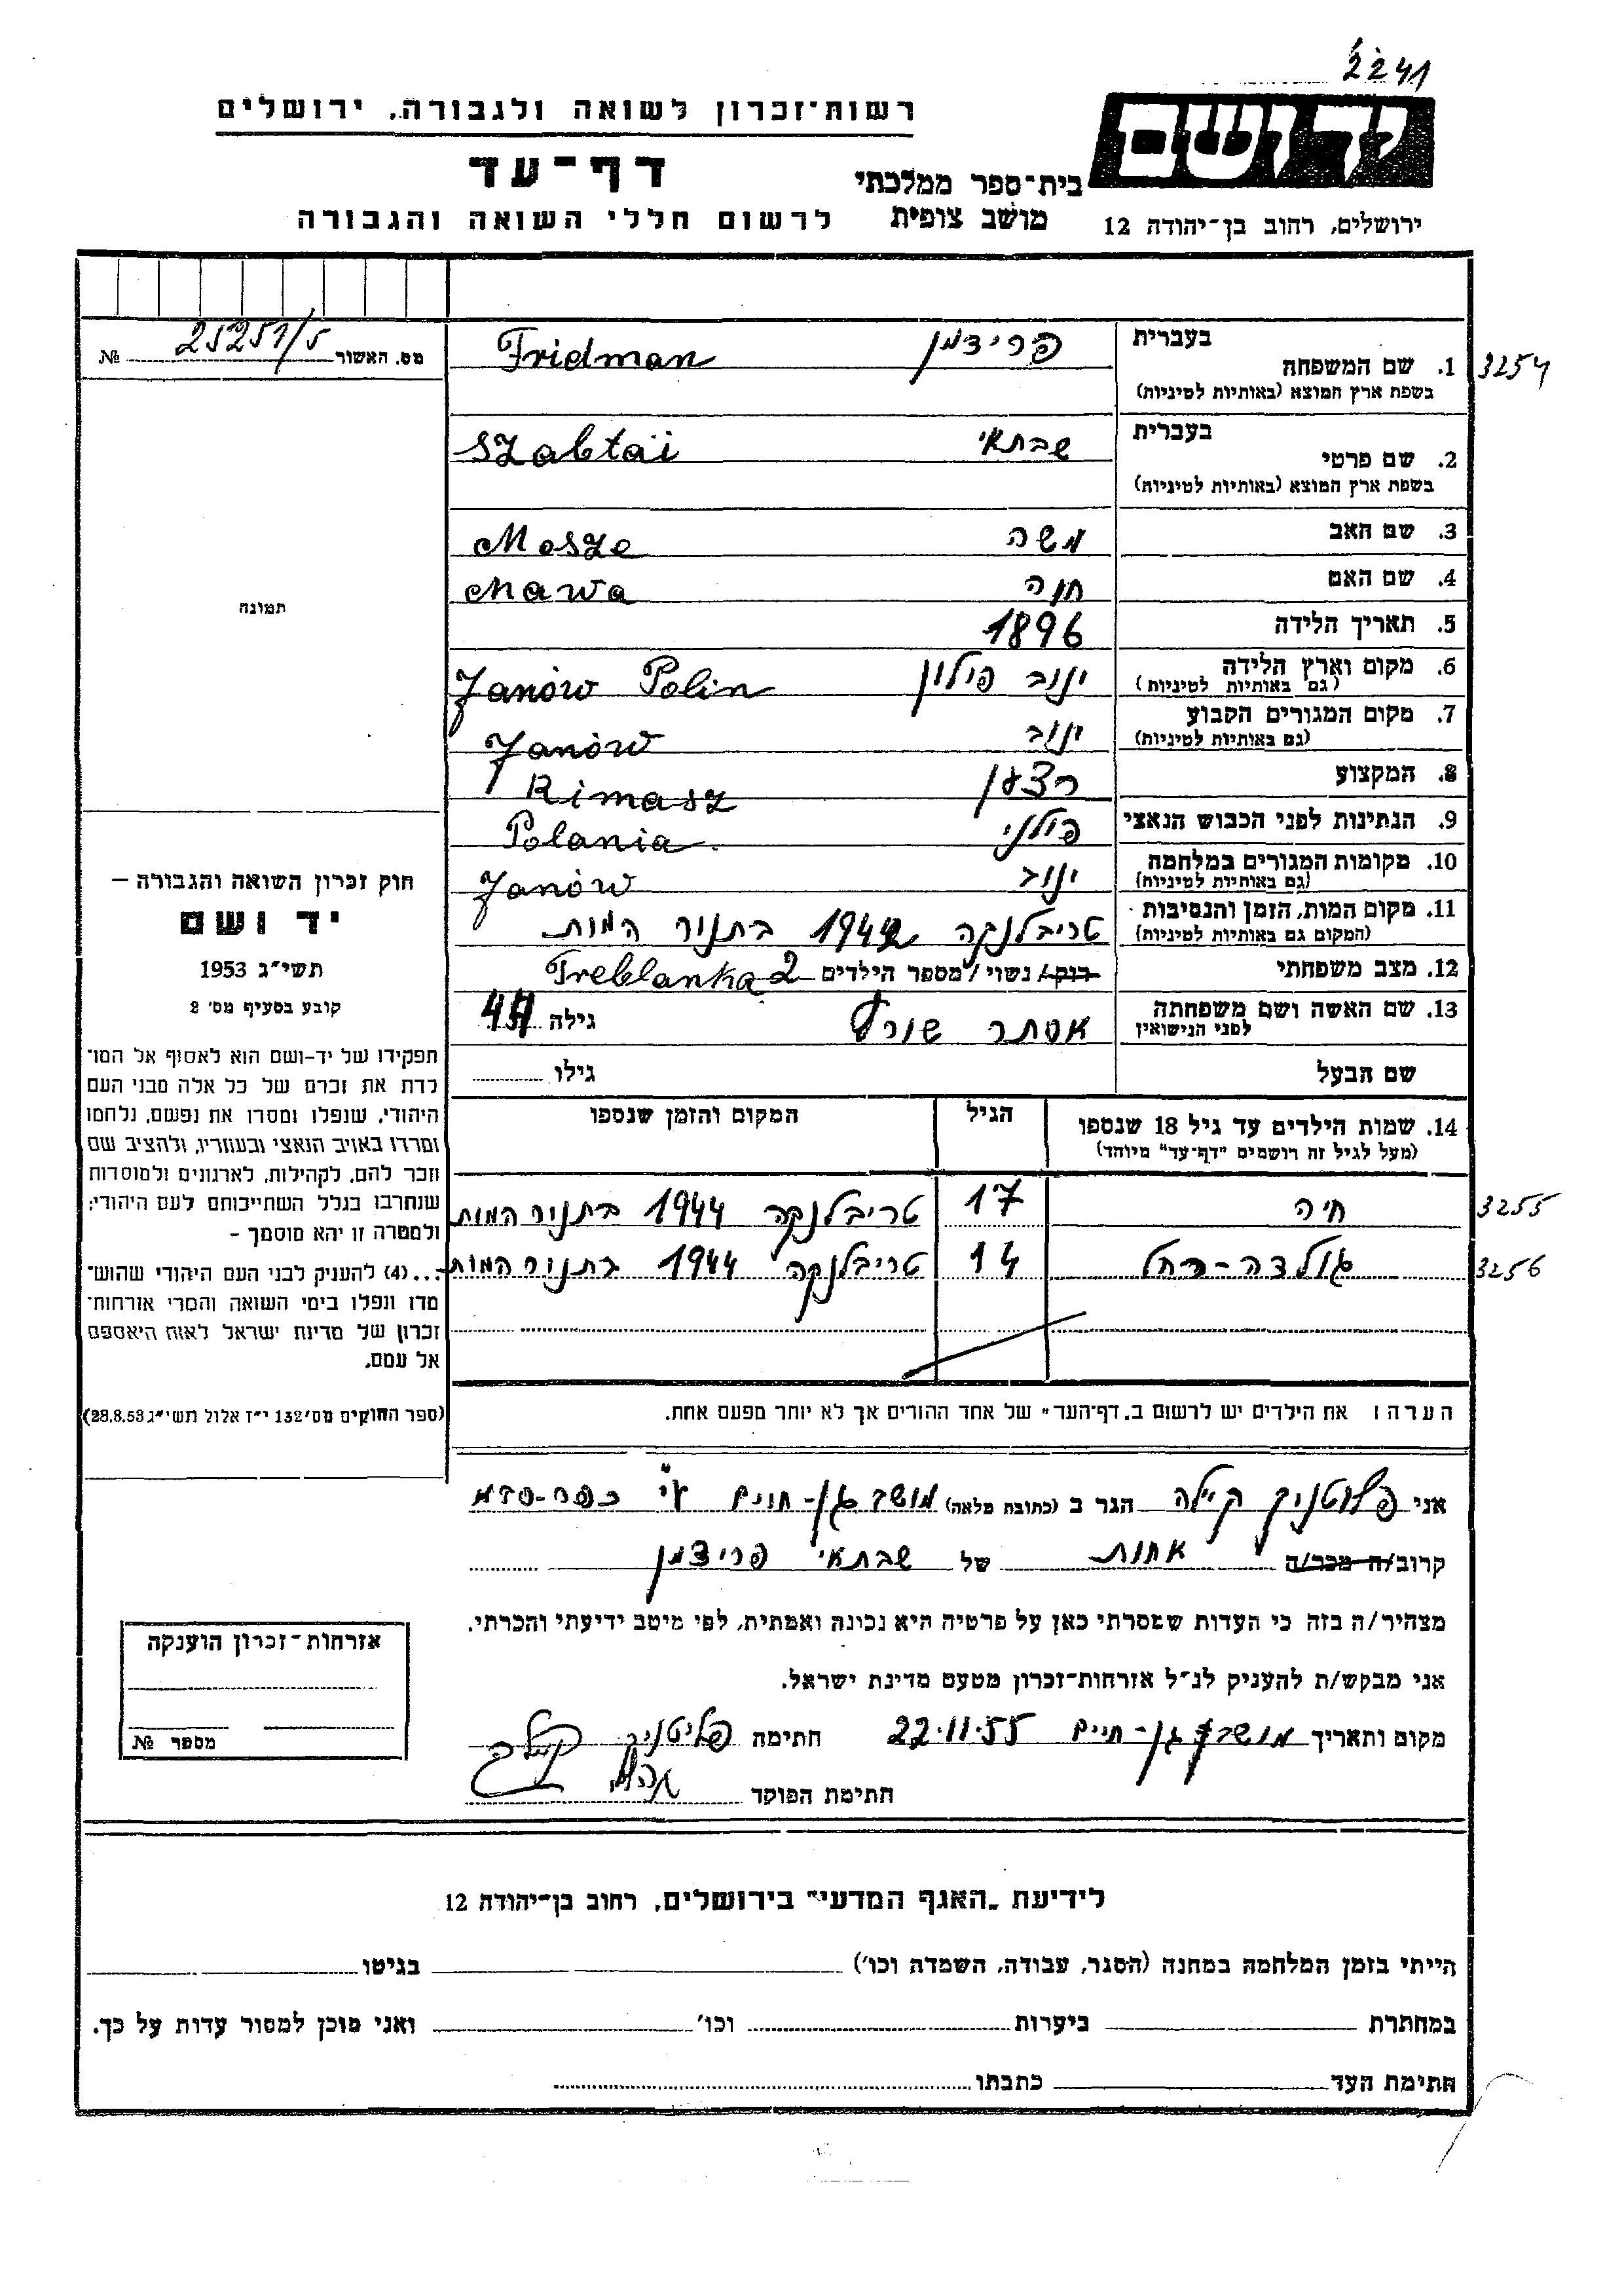 2241
יד ושם
רשות-זכרון לשואה ולגבורה, ירושלים
דף-עד
בית-ספר ממלכתי
לרשום חללי השואה והגבורה
מושב צופית
ירושלים, רחוב בן-יהודה 12
מס. האשור 25251/5 №
בעברית
1. שם המשפחה פרידמן Fridman 3254
בשפת ארץ המוצא (באותיות לטיניות)
בעברית
2. שם פרטי שבתאי Szabtai
בשפת ארץ המוצא (באותיות לטיניות)
3. שם האב משה Mosze
4. שם האם חנה
5. תאריך הלידה 1896
6. מקום וארץ הלידה ינוב פולין Janów Polin
(גם באותיות לטיניות)
7. מקום המגורים הקבוע ינוב Janów
(גם באותיות לטיניות)
8. המקצוע רצען Rimasz
9. הנתינות לפני הכבוש הנאצי פולני Polania
10. מקומות המגורים במלחמה ינוב Janów
(גם באותיות לטיניות)
11. מקום המות, הזמן והנסיבות טריבלנקה בתנור המות
(המקום גם באותיות לטיניות)
12. מצב משפחתי רוק/ נשוי/ מספר הילדים 2 Treblanka
13. שם האשה ושם משפחתה אסתר גילה
לפני הנישואין
שם הבעל גילו
14. שמות הילדים עד גיל 18 שנספו הגיל המקום והזמן שנספו
(מעל לגיל זה רושמים "דף-עד" מיוחד)
חיה 17 טריבלנקה 1944 בתנור המות 3255
גולדה-רחל 14 טריבלנקה 1944 בתנור המות 3256
הערה: את הילדים יש לרשום ב"דף-העד" של אחד ההורים אך לא יותר מפעם אחת.
תמונה
חוק זכרון השואה והגבורה –
יד ושם
תשי"ג 1953
קובע בסעיף מס' 2
תפקידו של יד-ושם הוא לאסוף אל המו־
לדת את זכרם של כל אלה מבני העם
היהודי, שנפלו ומסרו את נפשם, נלחמו
ומרדו באויב הנאצי ובעוזריו, ולהציב שם
וזכר להם, לקהילות, לארגונים ולמוסדות
שנחרבו בגלל השתייכותם לעם היהודי;
ולמטרה זו יהא מוסמך –
...(4) להעניק לבני העם היהודי שהוש־
מדו ונפלו בימי השואה והמרי אזרחות־
זכרון של מדינת ישראל לאות היאספם
אל עמם.
(ספר החוקים מס' 132 י"ז אלול תשי"ג 28.8.53)
אני פלוטניק קיילה הגר ב (כתובת מלאה) מושב גן-חיים ע"י כפר-סבא
קרוב/ה מכר/ה אחות של שבתאי פרידמן
מצהיר/ה בזה כי העדות שמסרתי כאן על פרטיה היא נכונה ואמתית, לפי מיטב ידיעתי והכרתי.
אני מבקש/ת להעניק לנ"ל אזרחות-זכרון מטעם מדינת ישראל.
מקום ותאריך מושב גן-חיים 22.11.55 חתימה פלוטניק קיילה
חתימת הפוקד
אזרחות-זכרון הוענקה
מספר №
לידיעת "האגף המדעי" בירושלים, רחוב בן-יהודה 12
הייתי בזמן המלחמה במחנה (הסגר, עבודה, השמדה וכו') בגיטו
במחתרת ביערות וכו' ואני מוכן למסור עדות על כך.
חתימת העד כתבתו